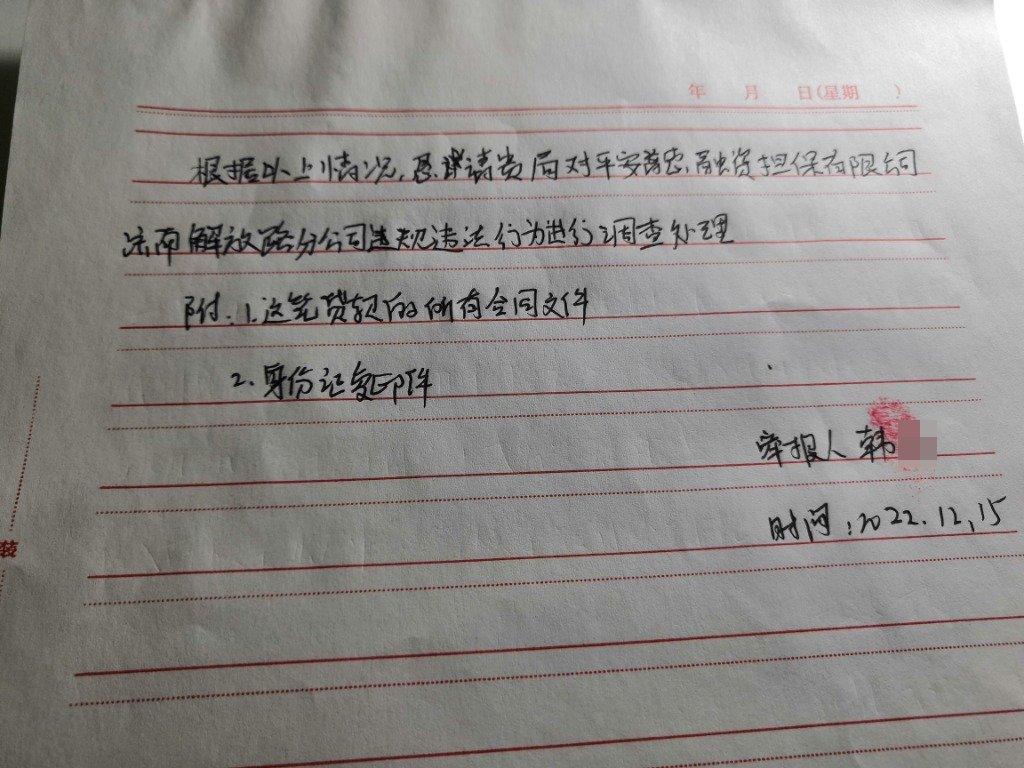 年 月 日(星期 )
根据以上情况,恳请贵局对平安普惠融资担保有限公司
济南解放路分公司违规违法行为进行调查处理
附:1.这笔贷款的所有合同文件
2.身份证复印件
举报人 韩
时间:2022.12,15
装